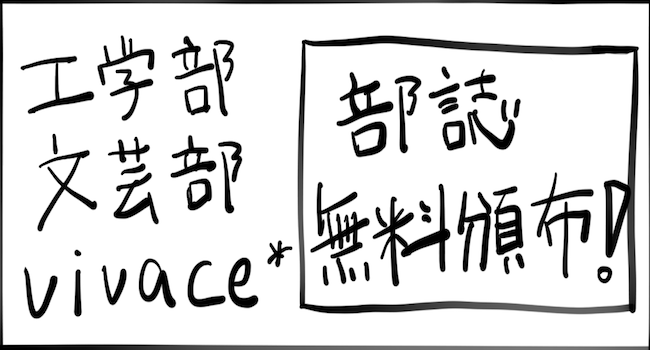 工学部
文芸部
vivace*
部誌
無料頒布!